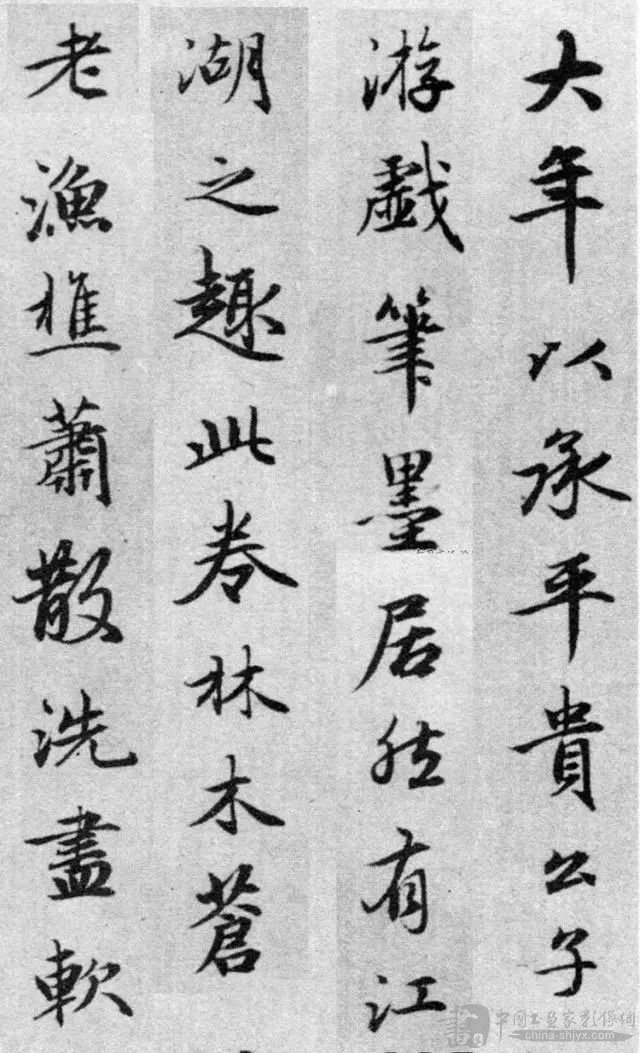 大年以承平貴公子
游戲筆墨居然有江
湖之趣此卷林木蒼
老漁樵蕭散洗盡軟
中国书画家影像網
china-shjyx.com